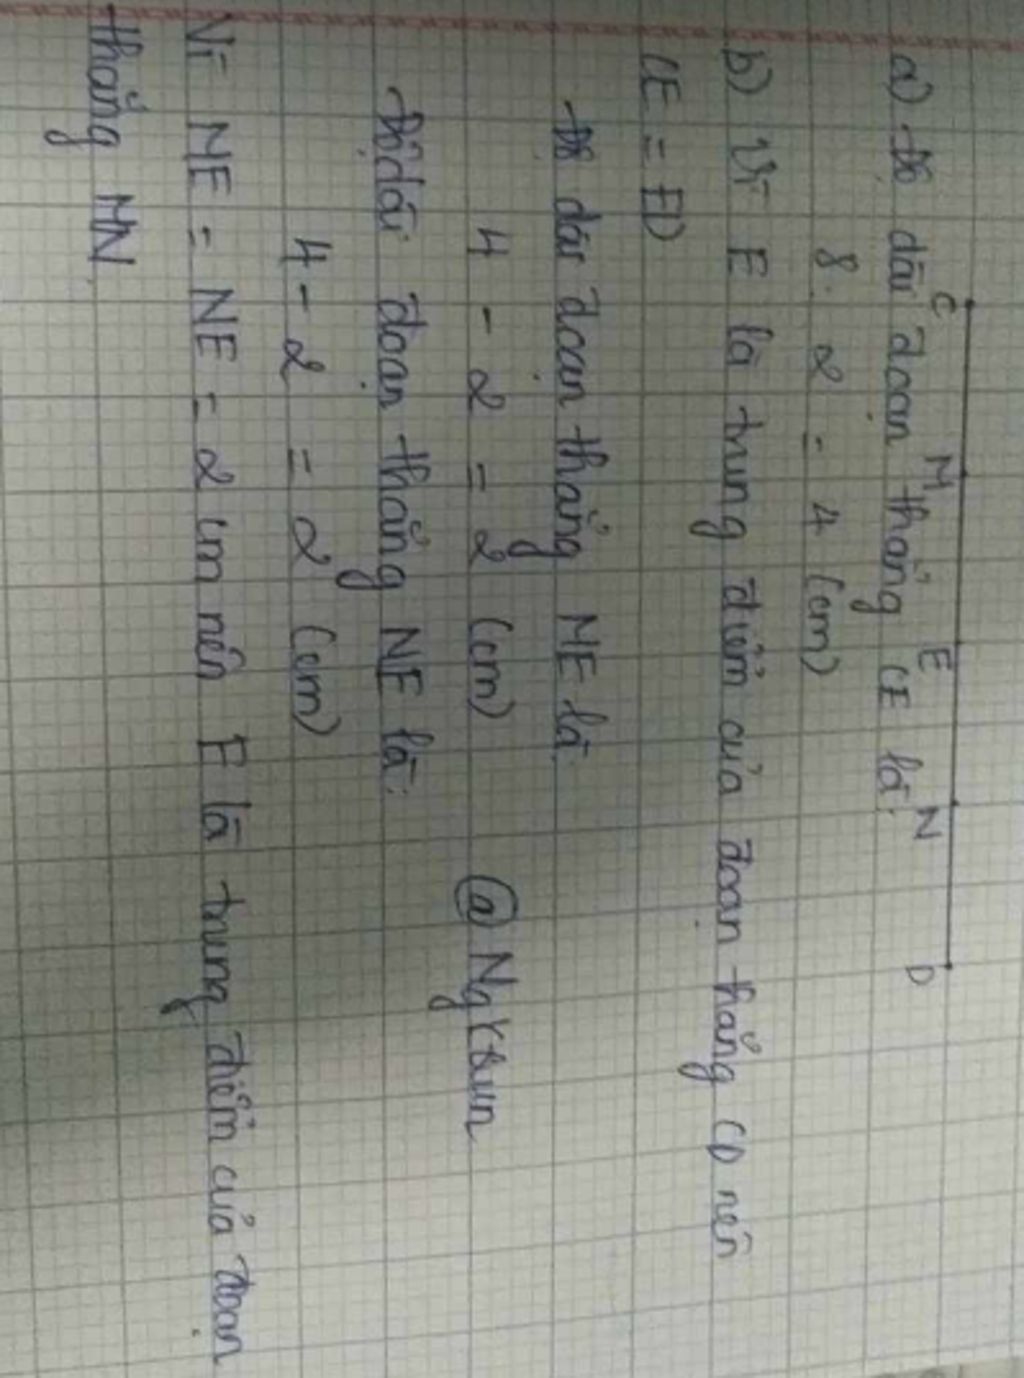 C M E N D
a) Độ dài đoạn thẳng CE là:
8 : 2 = 4 (cm)
b) Vì E là trung điểm của đoạn thẳng CD nên
CE = ED
Độ dài đoạn thẳng ME là
4 - 2 = 2 (cm)
@ Ngytun
Độ dài đoạn thẳng NE là:
4 - 2 = 2 (cm)
Vì ME = NE = 2 cm nên E là trung điểm của đoạn
thẳng MN